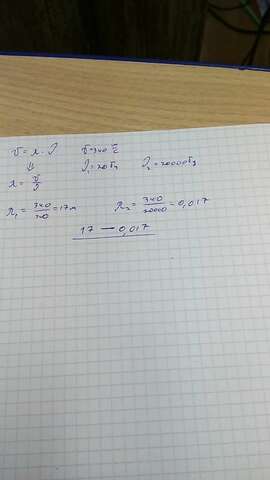 v = λ · ν v=340 м/с
⇓ ν₁=20Гц ν₂=20000Гц
λ = v/ν
λ₁ = 340/20 = 17м λ₂ = 340/20000 = 0,017
17 — 0,017